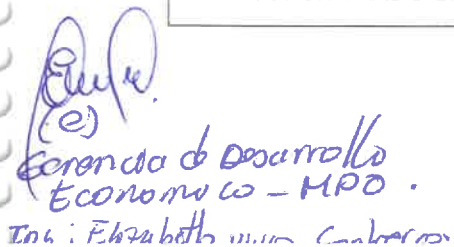 (e)
Gerencia de Desarrollo
Economico - MPO.
Ing: Elizabeth